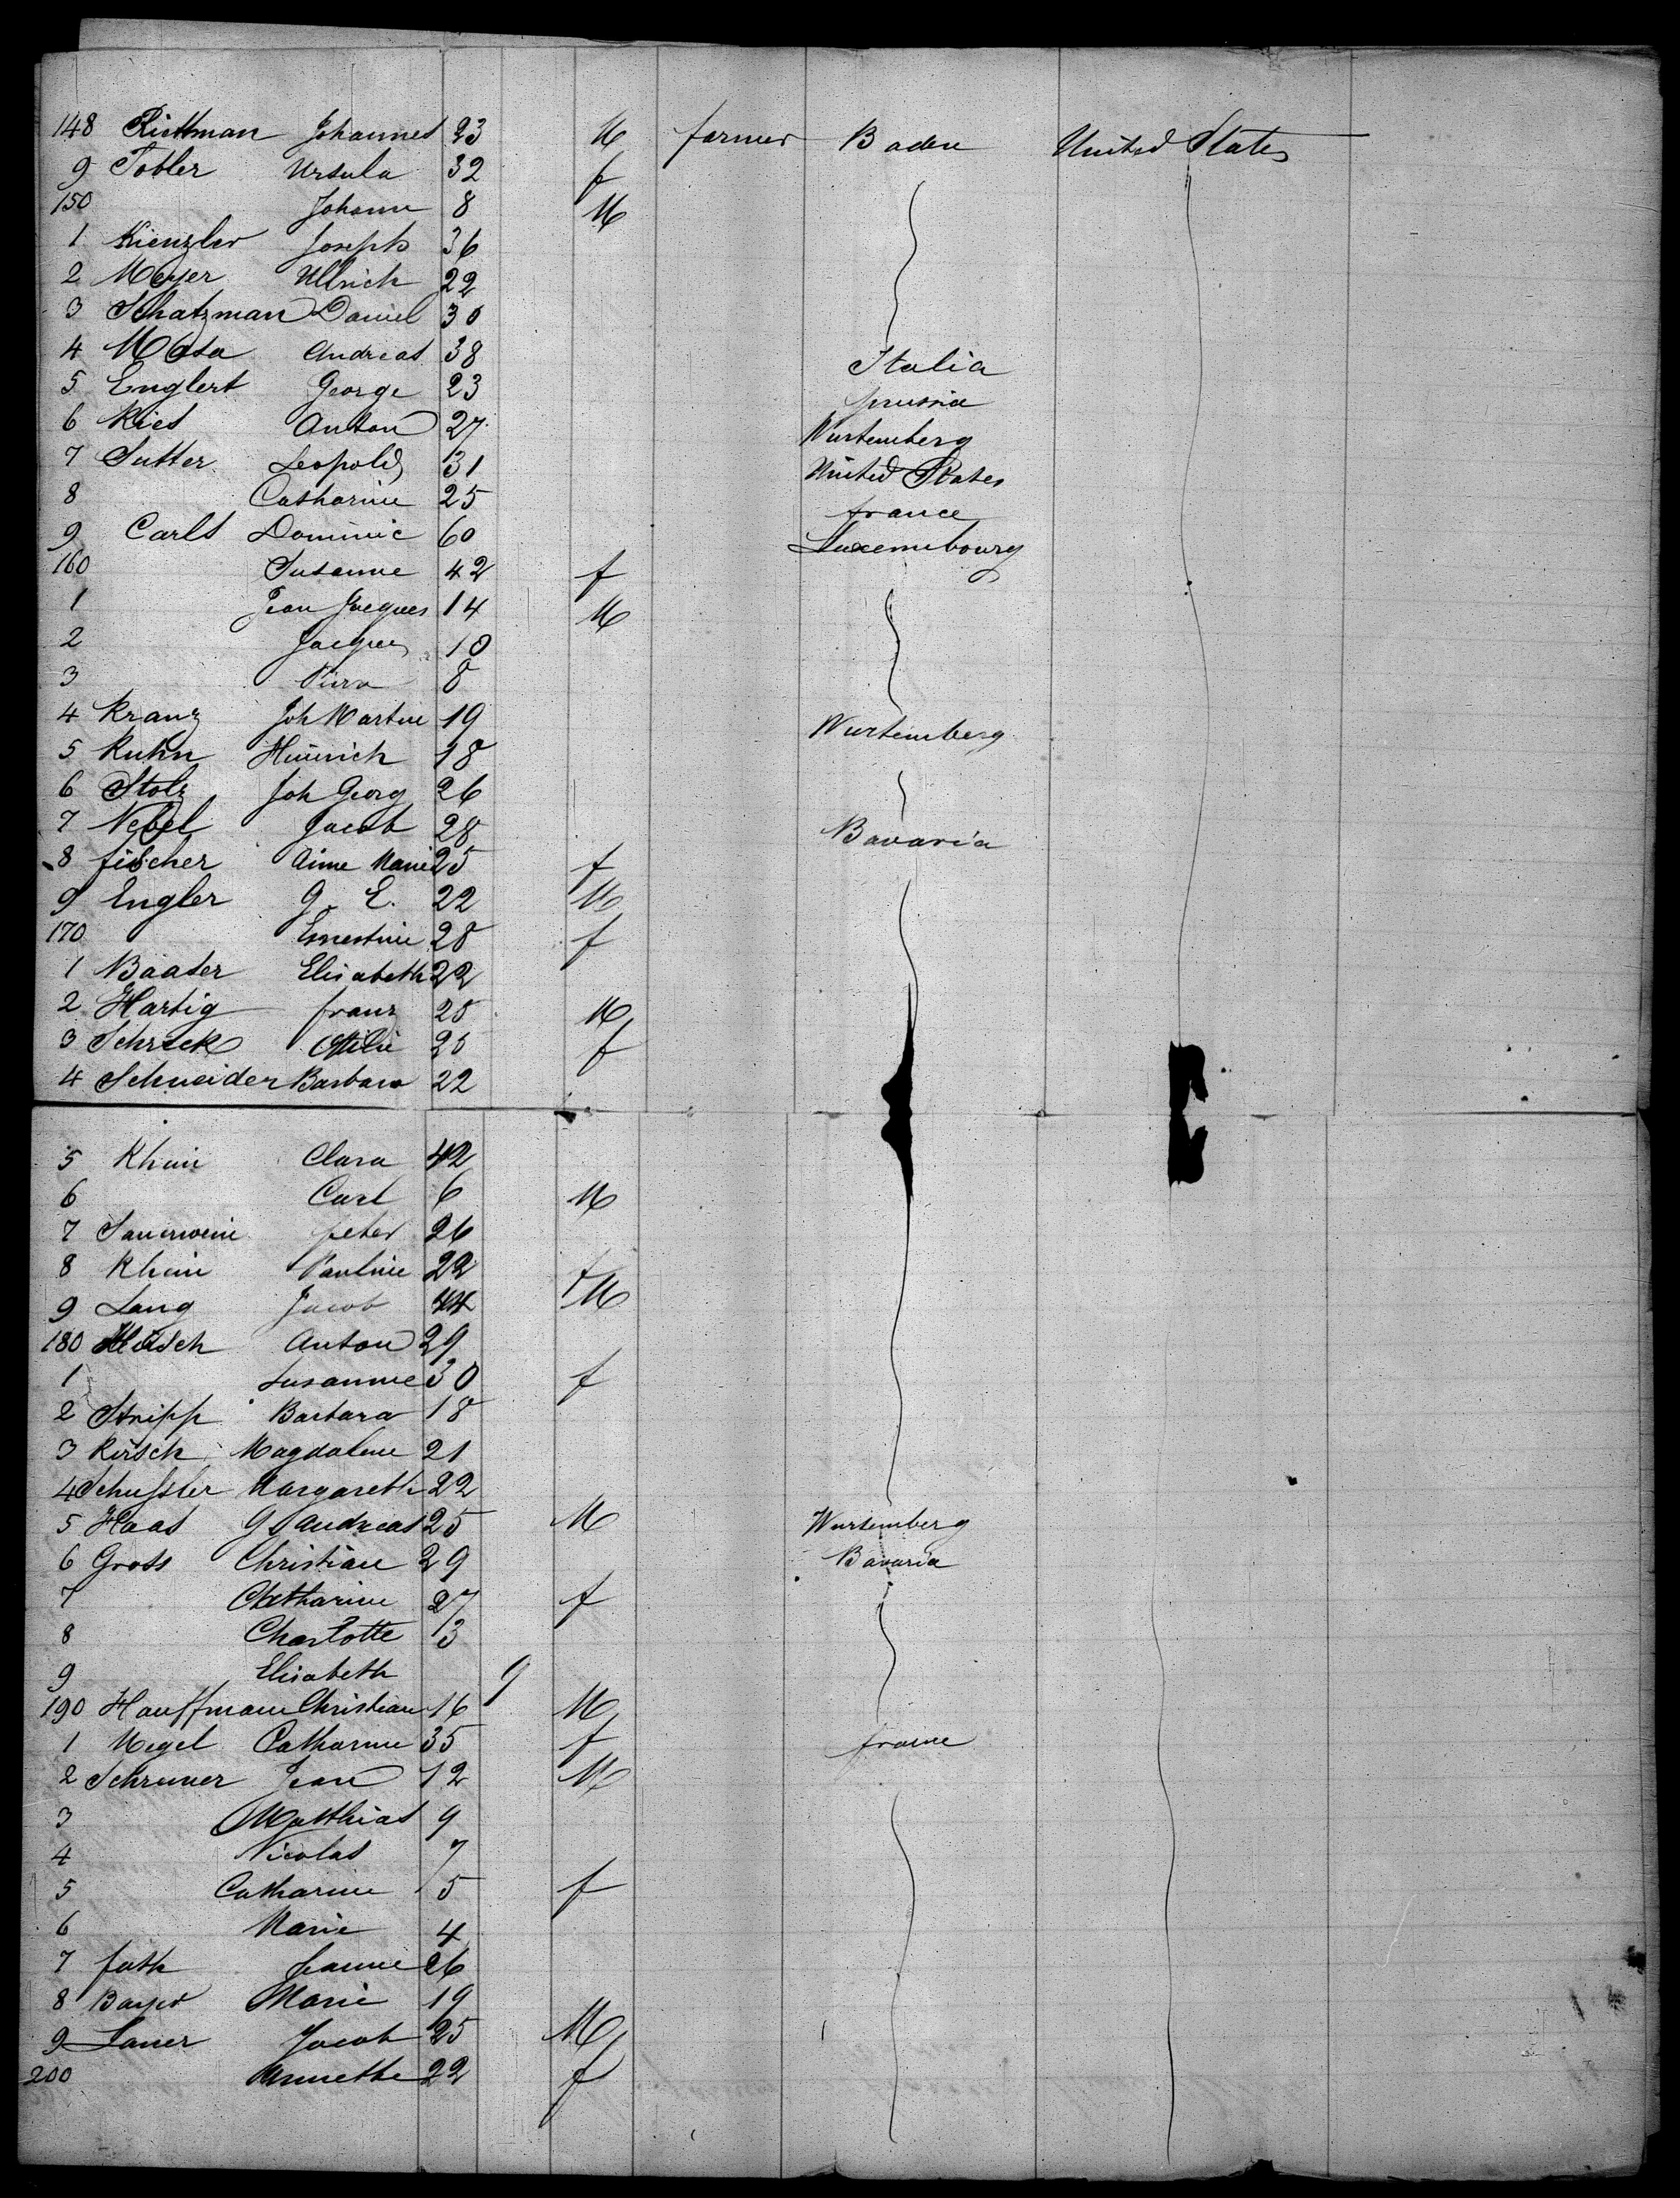 148 Riettman Johannes 23 M farmer Baden United States
9 Tobler Ursula 32 f
150 Johann 8 M
1 Kienzler Joseph 36
2 Meyer Ullrich 22
3 Schatzman Daniel 30
4 Mosa Andreas 38 Italia
5 Englert George 23 prussia
6 Ries Anton 27 Wurtemberg
7 Sutter Leopold 31 United States
8 Catharine 25 france
9 Carls Dominic 60 Luxembourg
160 Susanne 42 f
1 Jean Jacques 14 M
2 Jacques 10
3 8
4 Kranz Joh Martin 19 Wurtemberg
5 Kuhn Heinrich 18
6 Stolz Joh Georg 26
7 Nebel Jacob 28 Bavaria
8 fischer Anne Marie 25 f
9 Engler G. E. 22 M
170 Ernestine 28 f
1 Baater Elisabeth 22
2 Hartig franz 25 M
3 Schreck Ottilie 25 f
4 Schneider Barbara 22
5 Rhein Clara 42
6 Carl 6 M
7 Sauerwein peter 26
8 Rhein Pauline 22 f
9 Lang Jacob 44 M
180 Hirsch Anton 29
1 Susanne 30 f
2 Stripp Barbara 18
3 Kirsch Magdalene 21
4 Schussler Margareth 22
5 Haas G Andreas 25 M Wurtemberg
6 Gross Christian 29 Bavaria
7 Catharine 27 f
8 Charlotte 13
9 Elisabeth 9
190 Hauffmann Christian 16 M
1 Megel Catharine 35 f france
2 Schreiner Jean 12 M
3 Matthias 9
4 Nicolas 7
5 Catharine 5 f
6 Marie 4
7 fath Jeanne 26
8 Bayer Marie 19
9 Lauer Jacob 25 M
200 Annette 22 f